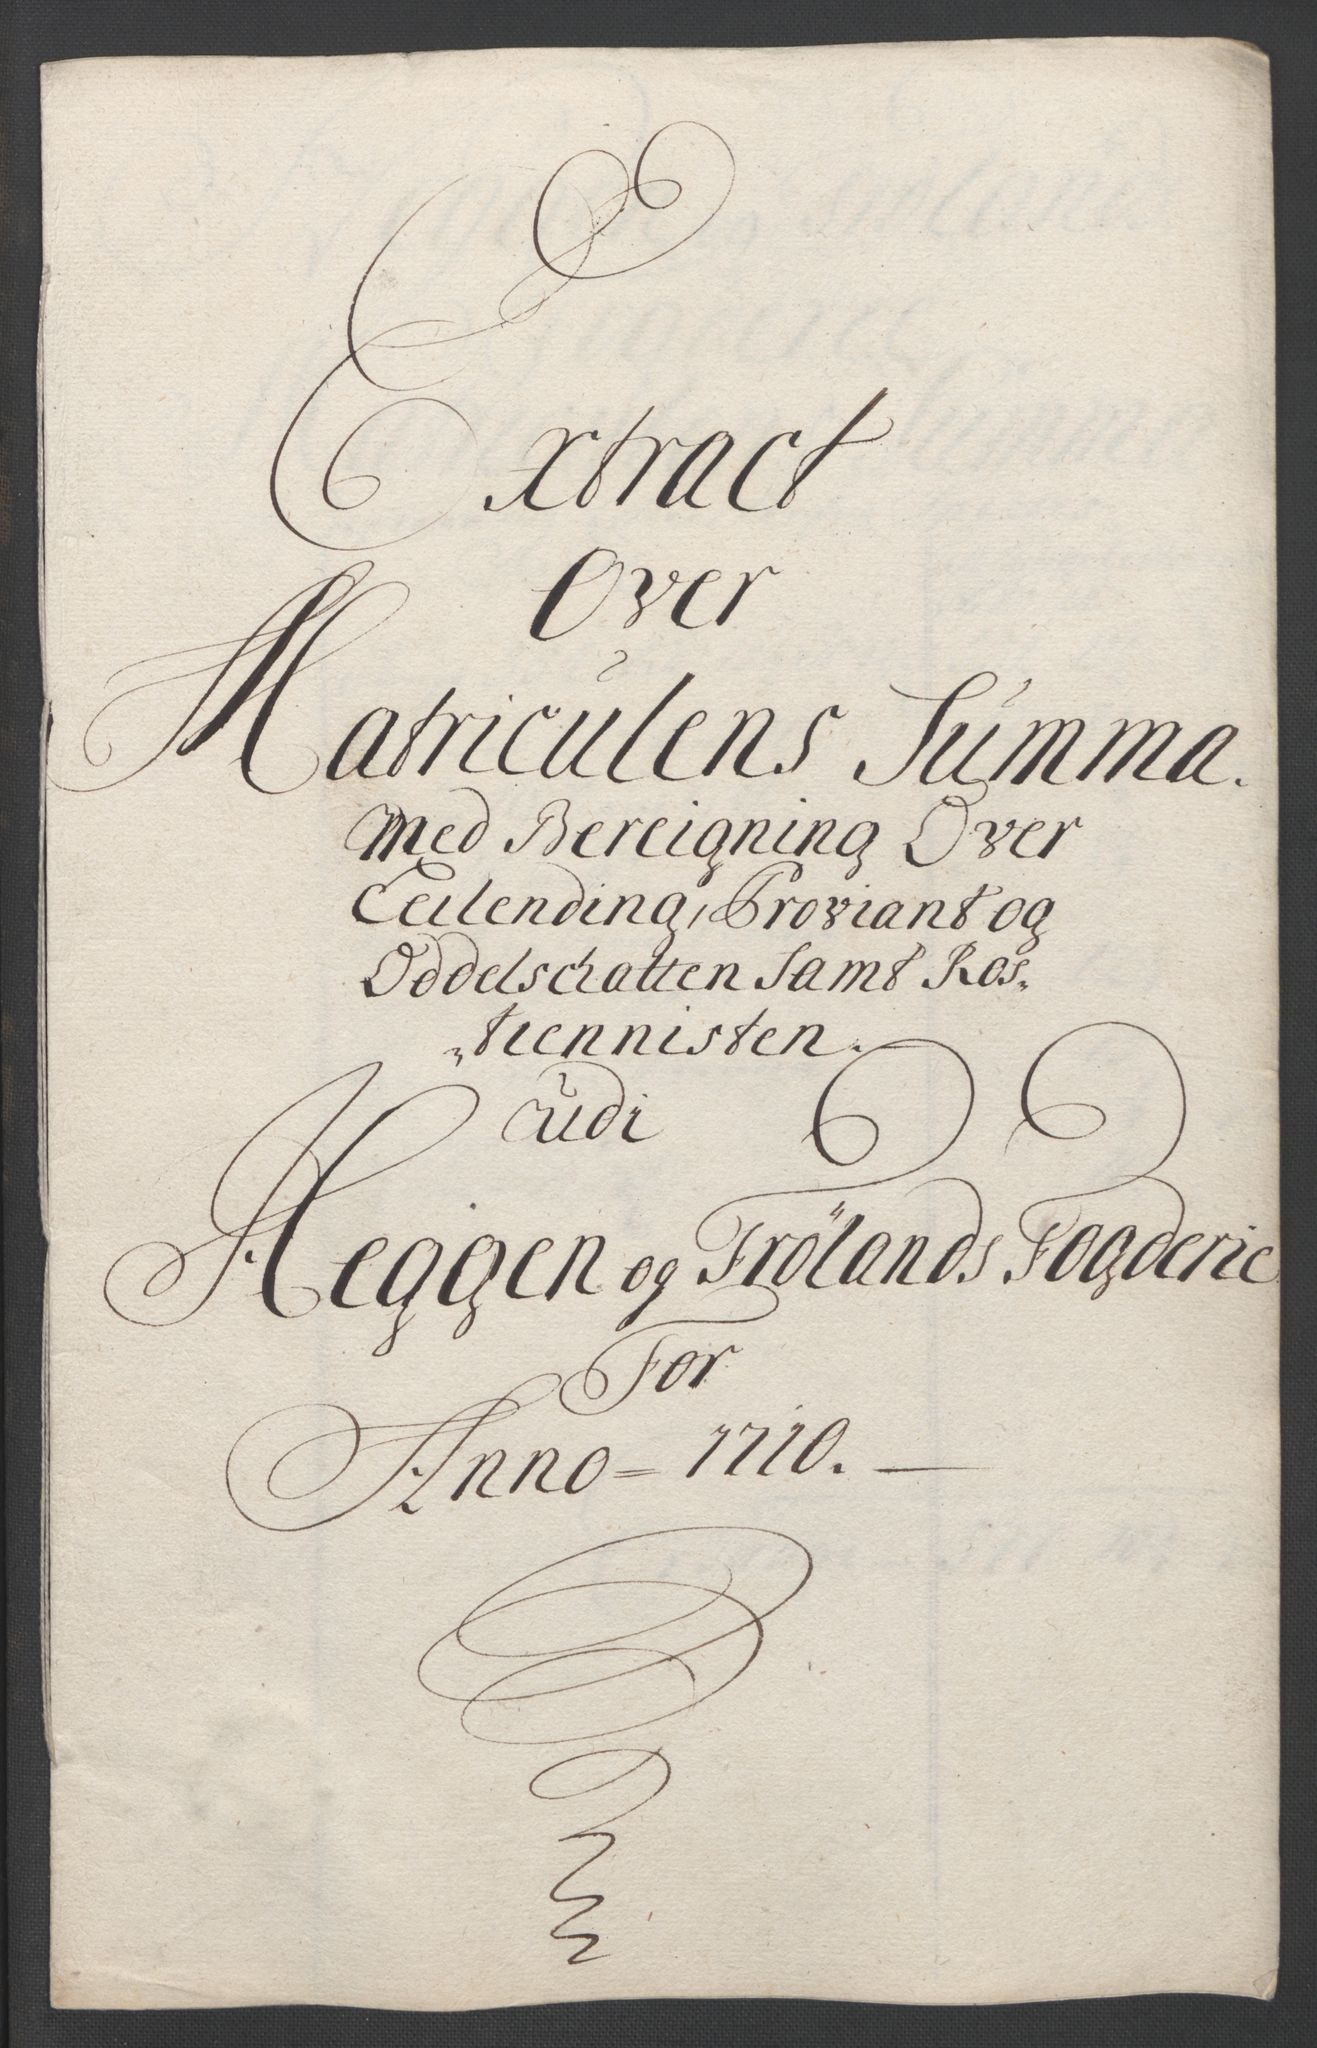 Extract
Over
Matriculens Summa.
med Bereigning Over
Leilending, Proviant og
Oddelschatten Samt Ros„
„tiennisten.
udi
Heggen og Frölands Fogderie
For
Anno = 1710.